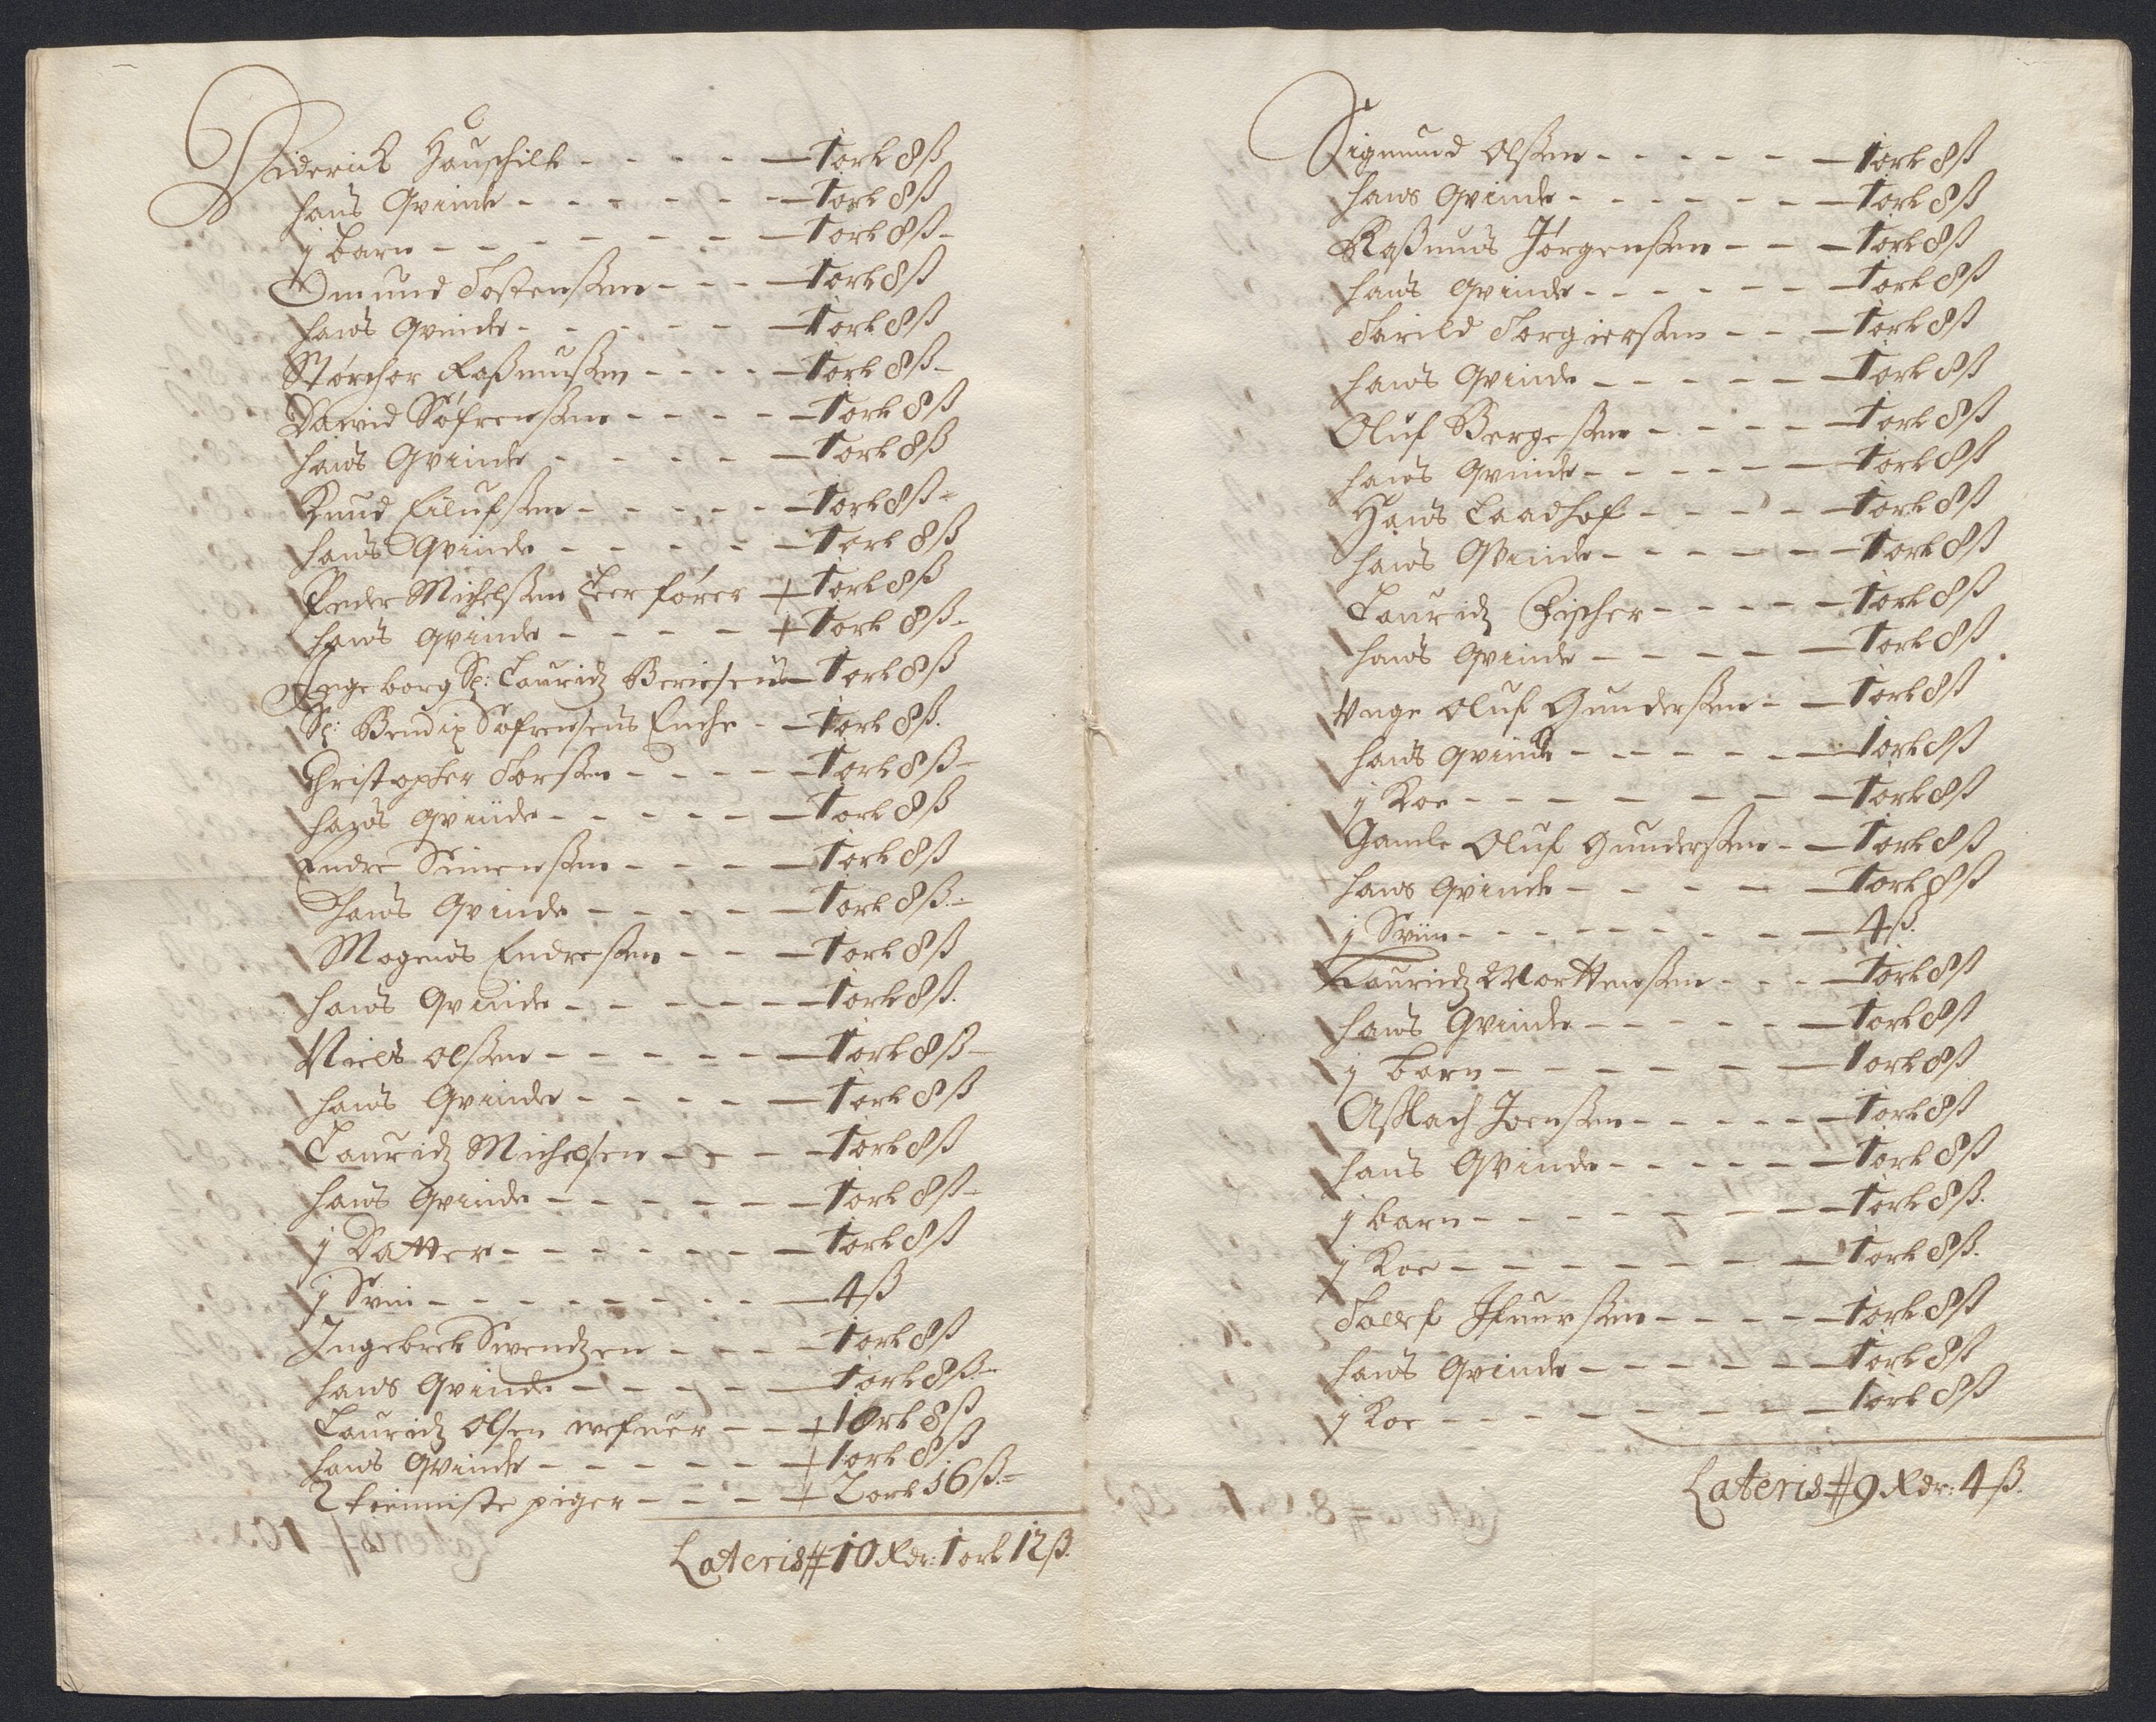 Diderich Hauschilt - - - - - 1 ort 8 ß
hans Qvinde - - - - - - 1 ort 8 ß
j barn - - - - - - - 1 ort 8 ß
Omund Tostensen - - - 1 ort 8 ß
hans Qvinde - - - - - - 1 ort 8 ß
Storchor Rasmusen - - - - 1 ort 8 ß
David Söfrensen - - - - - 1 ort 8 ß
hans Qvinde - - - - - 1 ort 8 ß
Knud Eilufsen - - - - - 1 ort 8 ß
hans Qvinde - - - - - 1 ort 8 ß
Peder Michelsen Leerförer + 1 ort 8 ß
hans Qvinde - - - - + 1 ort 8 ß
Ingeborg Sl: Lauridz Beriesens 1 ort 8 ß
Sl: Bendix Söfrensens Enche - - 1 ort 8 ß.
Christopher Torsen - - - - - 1 ort 8 ß
hans Qvinde - - - - - - 1 ort 8 ß
Endre Simensen - - - - 1 ort 8 ß
hans Qvinde - - - - - 1 ort 8 ß
Mogens Endresen - - - 1 ort 8 ß
hans Qvinde - - - - - - 1 ort 8 ß.
Niels Olsen - - - - - - 1 ort 8 ß
hans Qvinde - - - - - 1 ort 8 ß
Lauridz Michelsen - - - - 1 ort 8 ß
hans Qvinde - - - - - - 1 ort 8 ß
j Datter - - - - - - - 1 ort 8 ß
j Sviin - - - - - - - - 4 ß
Ingebret Svendzen - - - - 1 ort 8 ß
hans Qvinde - - - - - 1 ort 8 ß
Lauridz Olsen - - + 1 ort 8 ß
hans Qvinde - - - - - - + 1 ort 8 ß
2 tienniste piger - - - - + 2 ort 16 ß
Lateris # 10 Rdr: 1 ort 12 ß.
Sigmund Olsen - - - - - - 1 ort 8 ß
hans Qvinde - - - - - - - 1 ort 8 ß
Rasmus Jörgensen - - - 1 ort 8 ß
hans Qvinde - - - - - - 1 ort 8 ß
Tarild Torgiersen - - - 1 ort 8 ß
hans Qvinde - - - - - - 1 ort 8 ß
Oluf Bergesen - - - - - 1 ort 8 ß
hans Qvinde - - - - - - 1 ort 8 ß
Hans Laadhof - - - - - 1 ort 8 ß
hans Qvinde - - - - - - 1 ort 8 ß
Lauridz Fischer - - - - - 1 ort 8 ß
hans Qvinde - - - - - 1 ort 8 ß
Unge Oluf Gundersen - - 1 ort 8 ß
hans Qvinde - - - - - - 1 ort 8 ß
j Koe - - - - - - - - 1 ort 8 ß
Gamle Oluf Gundersen - - 1 ort 8 ß
hans Qvinde - - - - - 1 ort 8 ß
j Sviin - - - - - - - - - 4 ß.
Lauridz Mortensen - - - 1 ort 8 ß
hans Qvinde - - - - - - 1 ort 8 ß
j barn - - - - - - - 1 ort 8 ß
Asslach Joensen - - - - - 1 ort 8 ß
hans Qvinde - - - - - - 1 ort 8 ß
j barn - - - - - - - - 1 ort 8 ß.
j Koe - - - - - - - - 1 ort 8 ß.
Tolef Ifuersen - - - - - 1 ort 8 ß
hans Qvinde - - - - - - 1 ort 8 ß
j Koe - - - - - - - - 1 ort 8 ß
Lateris # 9 Rdr: 4 ß.